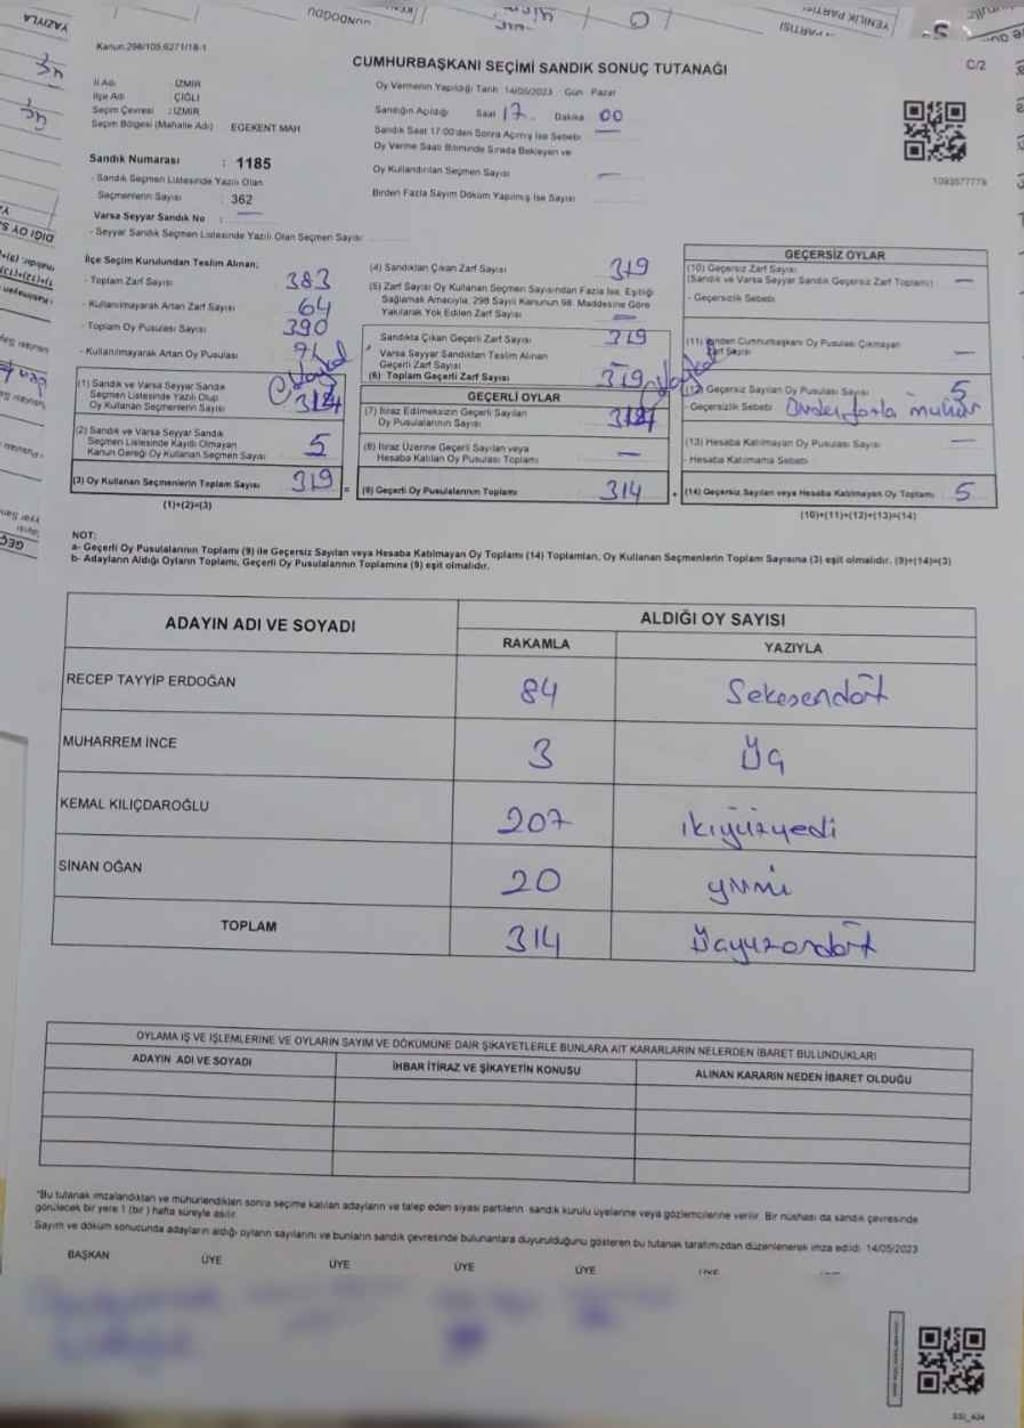 YAZIYLA
YENİLİK PARTİSİ
Kanun:298/105,6271/18-1
CUMHURBAŞKANI SEÇİMİ SANDIK SONUÇ TUTANAĞI
C/2
İl Adı : İZMİR
İlçe Adı : ÇİĞLİ
Seçim Çevresi : İZMİR
Seçim Bölgesi (Mahalle Adı) EGEKENT MAH
Oy Vermenin Yapıldığı Tarih: 14/05/2023 Gün: Pazar
Sandığın Açıldığı Saat 17 Dakika 00
Sandık Saat 17:00'den Sonra Açılmış İse Sebebi
Oy Verme Saati Bitiminde Sırada Bekleyen ve
Oy Kullandırılan Seçmen Sayısı —
Birden Fazla Sayım Döküm Yapılmış İse Sayısı
1093577779
Sandık Numarası : 1185
- Sandık Seçmen Listesinde Yazılı Olan
Seçmenlerin Sayısı : 362
Varsa Seyyar Sandık No : —
- Seyyar Sandık Seçmen Listesinde Yazılı Olan Seçmen Sayısı
İlçe Seçim Kurulundan Teslim Alınan;
- Toplam Zarf Sayısı 383
- Kullanılmayarak Artan Zarf Sayısı 64
- Toplam Oy Pusulası Sayısı 390
- Kullanılmayarak Artan Oy Pusulası 71
(1) Sandık ve Varsa Seyyar Sandık
Seçmen Listesinde Yazılı Olup
Oy Kullanan Seçmenlerin Sayısı 314
(2) Sandık ve Varsa Seyyar Sandık
Seçmen Listesinde Kayıtlı Olmayan
Kanun Gereği Oy Kullanan Seçmen Sayısı 5
(3) Oy Kullanan Seçmenlerin Toplam Sayısı 319 =
(1)+(2)=(3)
(4) Sandıktan Çıkan Zarf Sayısı 319
(5) Zarf Sayısı Oy Kullanan Seçmen Sayısından Fazla İse, Eşitliği
Sağlamak Amacıyla, 298 Sayılı Kanunun 98. Maddesine Göre
Yakılarak Yok Edilen Zarf Sayısı —
Sandıkta Çıkan Geçerli Zarf Sayısı 319
Varsa Seyyar Sandıktan Teslim Alınan
Geçerli Zarf Sayısı —
(6) Toplam Geçerli Zarf Sayısı 319
GEÇERLİ OYLAR
(7) İtiraz Edilmeksizin Geçerli Sayılan
Oy Pusulalarının Sayısı 314
(8) İtiraz Üzerine Geçerli Sayılan veya
Hesaba Katılan Oy Pusulası Toplamı —
(9) Geçerli Oy Pusulalarının Toplamı 314 +
GEÇERSİZ OYLAR
(10) Geçersiz Zarf Sayısı
(Sandık ve Varsa Seyyar Sandık Geçersiz Zarf Toplamı) —
- Geçersizlik Sebebi
Cumhurbaşkanı Oy Pusulası Çıkmayan
Zarf Sayısı —
(12) Geçersiz Sayılan Oy Pusulası Sayısı 5
- Geçersizlik Sebebi Birden fazla mühür
(13) Hesaba Katılmayan Oy Pusulası Sayısı —
- Hesaba Katılmama Sebebi
(14) Geçersiz Sayılan veya Hesaba Katılmayan Oy Toplamı 5
(10)+(11)+(12)+(13)=(14)
NOT:
a- Geçerli Oy Pusulalarının Toplamı (9) ile Geçersiz Sayılan veya Hesaba Katılmayan Oy Toplamı (14) Toplamları, Oy Kullanan Seçmenlerin Toplam Sayısına (3) eşit olmalıdır. (9)+(14)=(3)
b- Adayların Aldığı Oyların Toplamı, Geçerli Oy Pusulalarının Toplamına (9) eşit olmalıdır.
ADAYIN ADI VE SOYADI
ALDIĞI OY SAYISI
RAKAMLA YAZIYLA
RECEP TAYYİP ERDOĞAN 84 Seksendört
MUHARREM İNCE 3 Üç
KEMAL KILIÇDAROĞLU 207 ikiyüzyedi
SİNAN OĞAN 20 yirmi
TOPLAM 314 Üçyüzondört
OYLAMA İŞ VE İŞLEMLERİNE VE OYLARIN SAYIM VE DÖKÜMÜNE DAİR ŞİKAYETLERLE BUNLARA AİT KARARLARIN NELERDEN İBARET BULUNDUKLARI
ADAYIN ADI VE SOYADI İHBAR İTİRAZ VE ŞİKAYETİN KONUSU ALINAN KARARIN NEDEN İBARET OLDUĞU
*Bu tutanak imzalandıktan ve mühürlendikten sonra seçime katılan adayların ve talep eden siyasi partilerin sandık kurulu üyelerine veya gözlemcilerine verilir. Bir nüshası da sandık çevresinde
görülecek bir yere 1 (bir) hafta süreyle asılır.
Sayım ve döküm sonucunda adayların aldığı oyların sayılarını ve bunların sandık çevresinde bulunanlara duyurulduğunu gösteren bu tutanak tarafımızdan düzenlenerek imza edildi. 14/05/2023
BAŞKAN ÜYE ÜYE ÜYE ÜYE